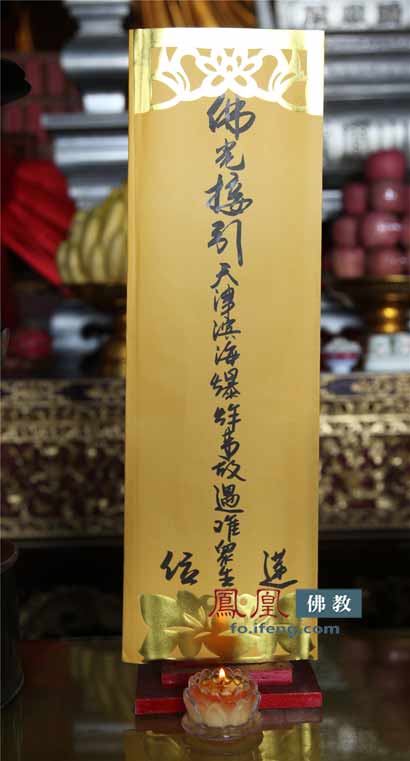 佛光接引天津滨海爆炸事故遇难眾生
莲位
鳳凰 佛教
fo.ifeng.com